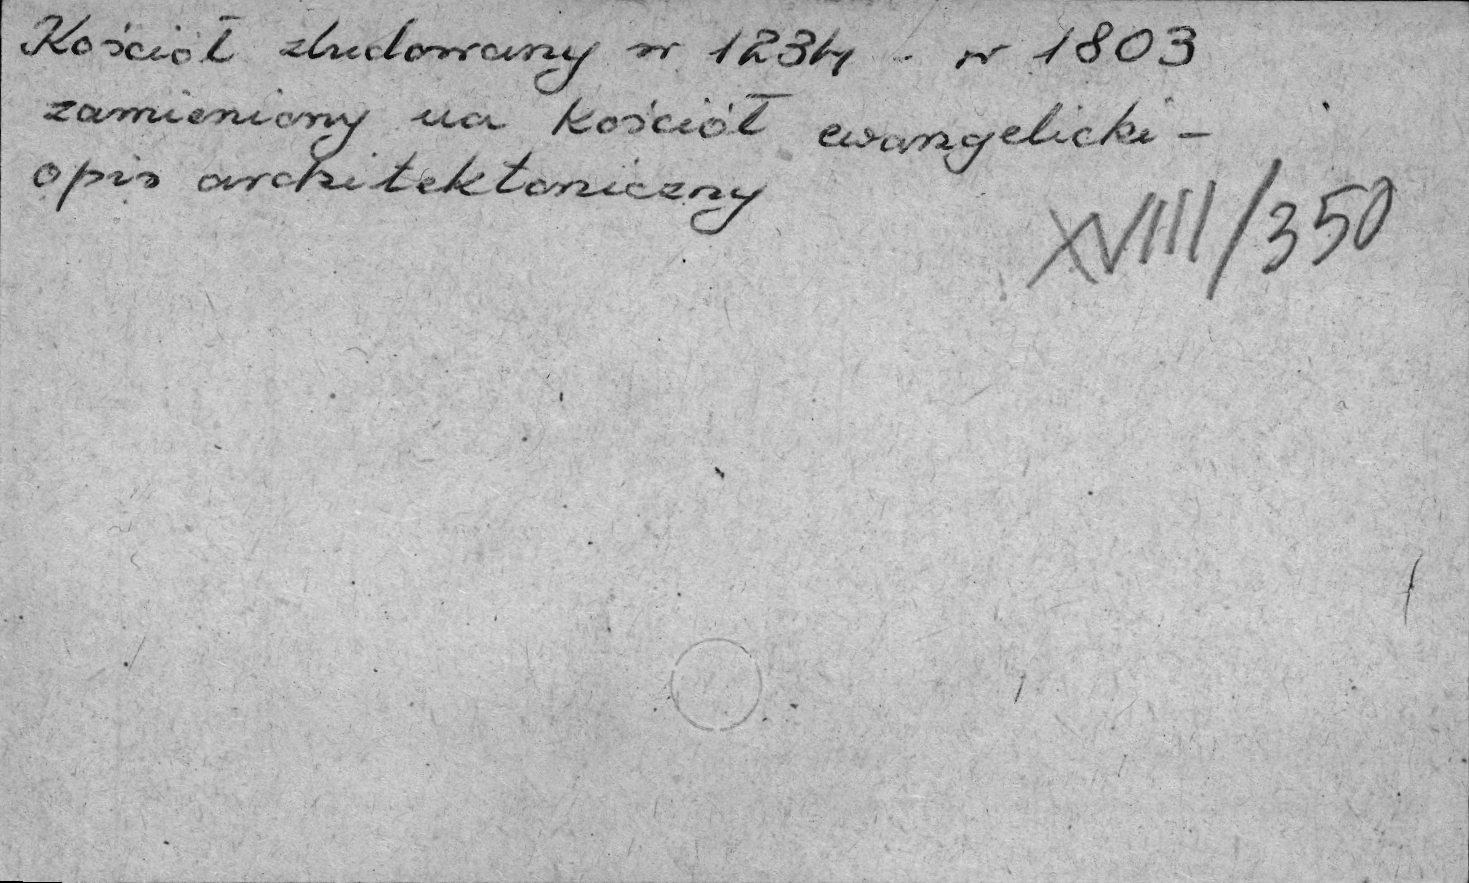 Kościół zbudowany w 1234 - w 1803
zamieniony na kościół ewangelicki -
opis architektoniczny
XVIII/350